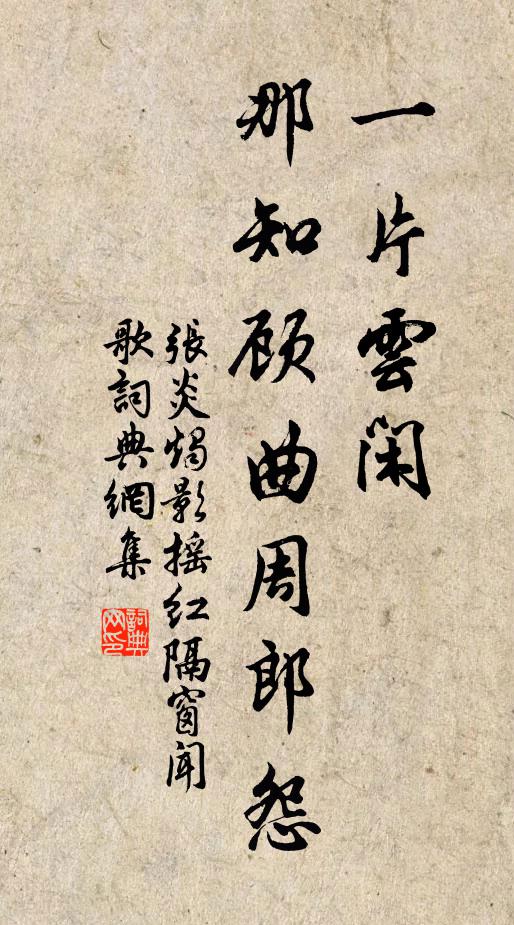 一片雲閑
那知顧曲周郎怨
張炎燭影摇红隔窗聞
歌詞典網集
詞典
网印